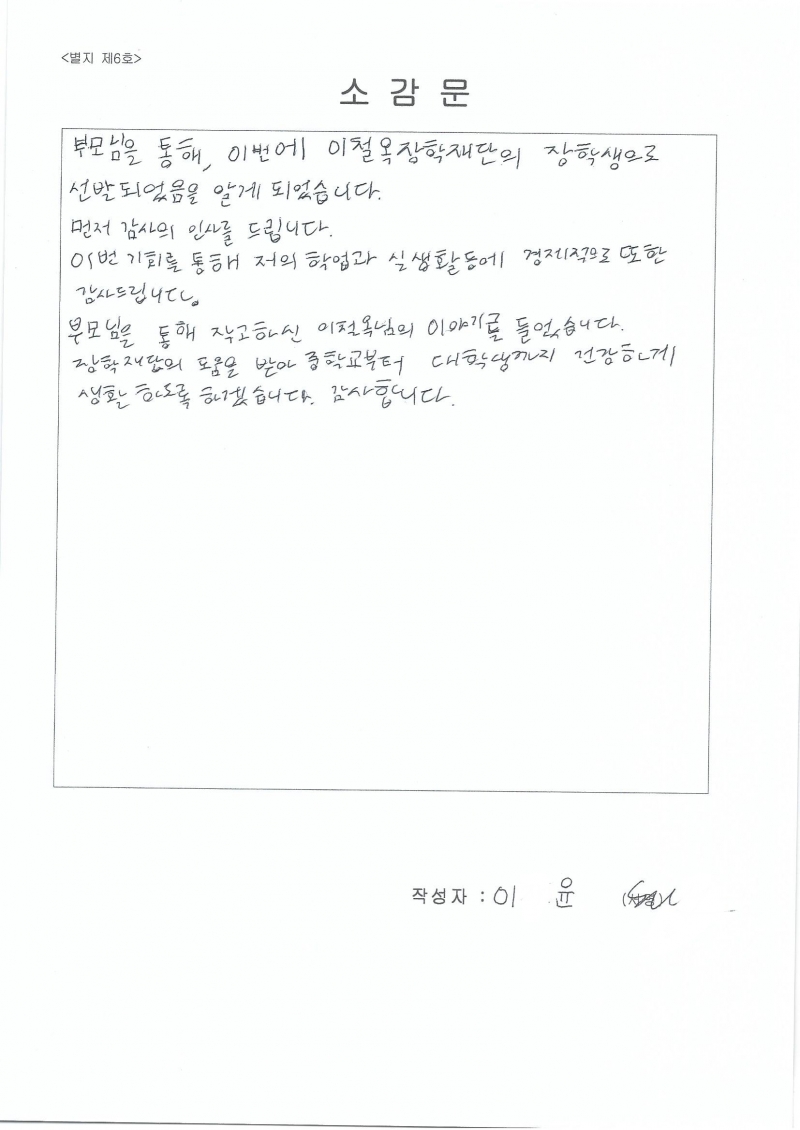 <별지 제6호>
소 감 문
부모님을 통해, 이번에 이철옥장학재단의 장학생으로
선발되었음을 알게 되었습니다.
먼저 감사의 인사를 드립니다.
이번 기회를 통해 저의 학업과 실생활동에 경제적으로 또한
감사드립니다.
부모님을 통해 작고하신 이철옥님의 이야기를 들었습니다.
장학재단의 도움을 받아 중학교부터 대학생까지 건강하게
생활 하도록 하겠습니다. 감사합니다.
작성자 : 이 윤 (서명)